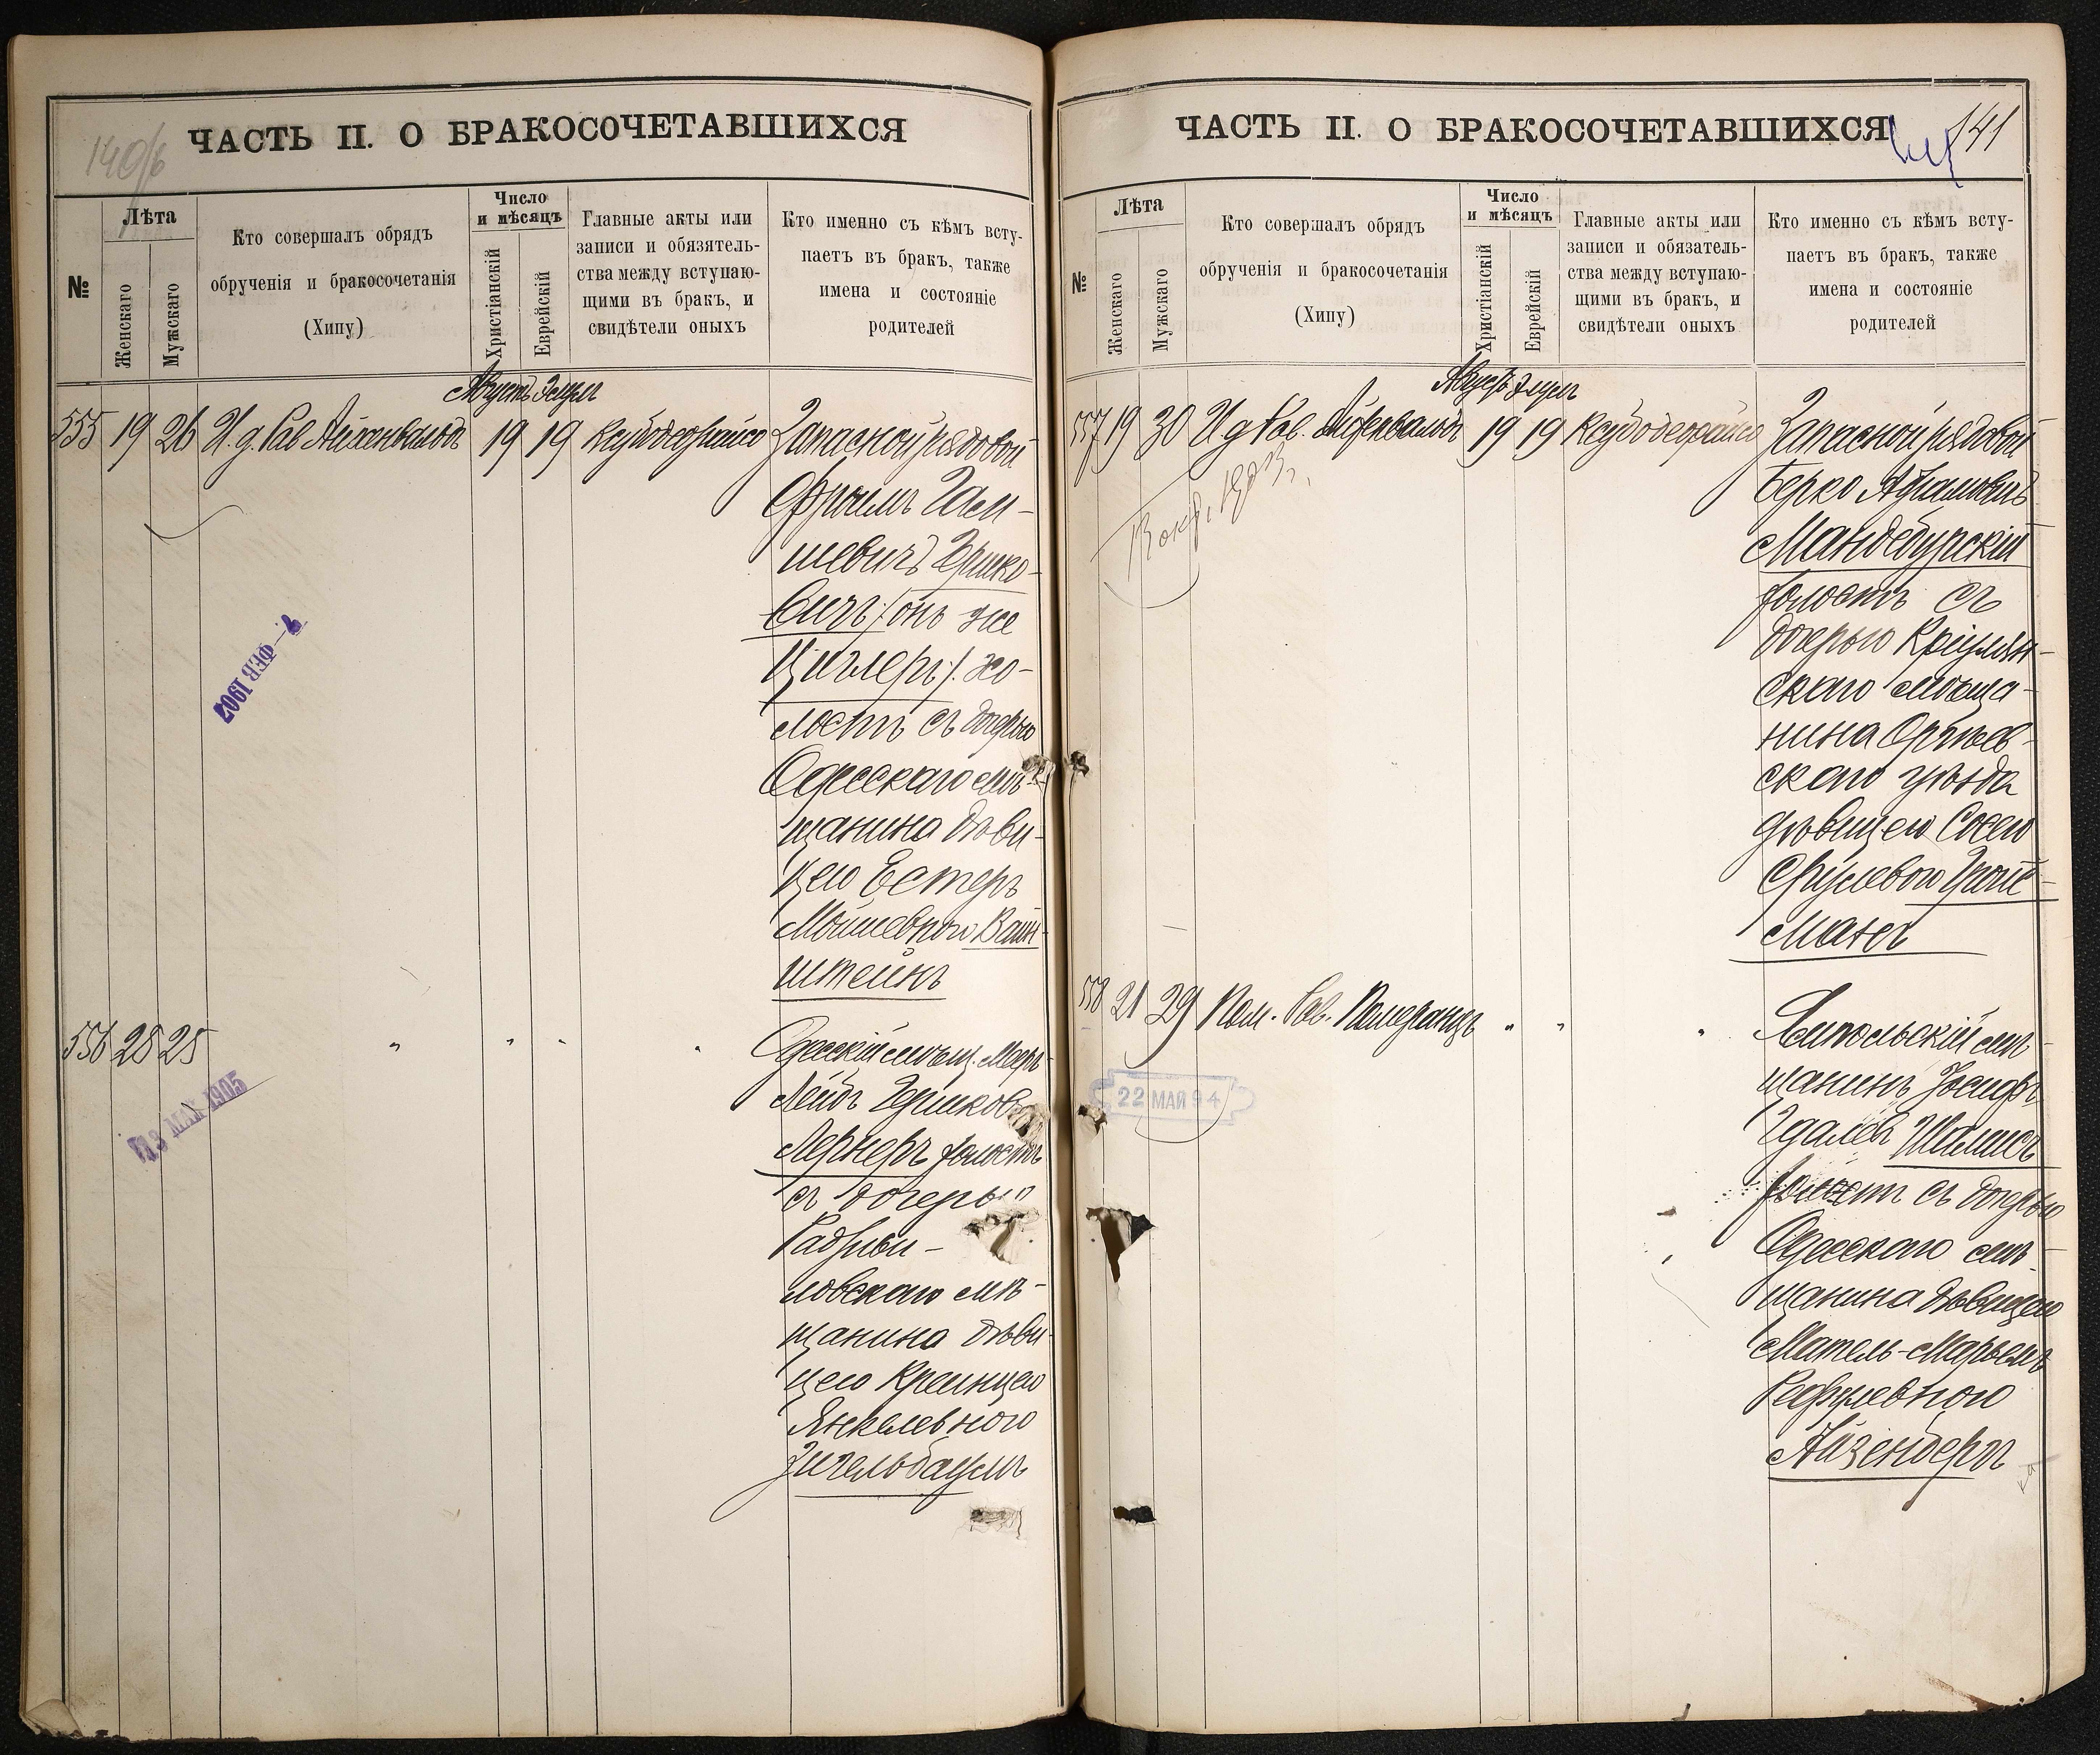 140/б
ЧАСТЬ II. О БРАКОСОЧЕТАВШИХСЯ
№
Лѣта
Женскаго
Мужскаго
Кто совершалъ обрядъ
обрученія и бракосочетанія
(Хипу)
Число
и мѣсяцъ
Христіанскій
Еврейскій
Главные акты или
записи и обязятель-
ства между вступаю-
щими въ бракъ, и
свидѣтели оныхъ
Кто именно съ кѣмъ всту-
паетъ въ бракъ, также
имена и состояніе
родителей
Августъ Элулъ
555 19 26 И. д. Рав Айхенвальдъ 19 19 Запасной рядовой
Фроимъ Гем-
шевичъ Гершко-
вичъ (онъ же
Циглеръ) хо-
лостъ съ дочерью
Одесскаго мѣ-
щанина дѣви-
цею Естеръ
Мошевною Вайн-
штейнъ
2 – ФЕВ 1902
556 28 25 " " " " Одесскій мѣщ. Мееръ
Лейбъ Гершковъ
Лернеръ холостъ
съ дочерью
Радзиви-
ловскаго мѣ-
щанина дѣви-
цею Креинцею
Янкелевною
Зигельбаумъ
13 МАЯ 1905
ЧАСТЬ II. О БРАКОСОЧЕТАВШИХСЯ
141
№
Лѣта
Женскаго
Мужскаго
Кто совершалъ обрядъ
обрученія и бракосочетанія
(Хипу)
Число
и мѣсяцъ
Христіанскій
Еврейскій
Главные акты или
записи и обязатель-
ства между вступаю-
щими въ бракъ, и
свидѣтели оныхъ
Кто именно съ кѣмъ всту-
паетъ въ бракъ, также
имена и состояніе
родителей
Августъ Элулъ
557 19 30 И д Рав. Айхенвальдъ 19 19 Запасной рядовой
Берко Абрамовичъ
Мандебурскій
холостъ съ
дочерью Кріулян-
скаго мѣща-
нина Оргѣев-
скаго уѣзда
дѣвицею Сосею
Срулевою Гройс-
манъ
558 21 29 Пом. Рав. Померанцъ " " " Литольскій мѣ-
щанинъ Іосифъ
Гдалев Шамисъ
холостъ съ дочерью
Одесскаго мѣ-
щанина дѣвицею
Матель-Марьемъ
Рефулевною
Айзенбергъ
22 МАЯ 94